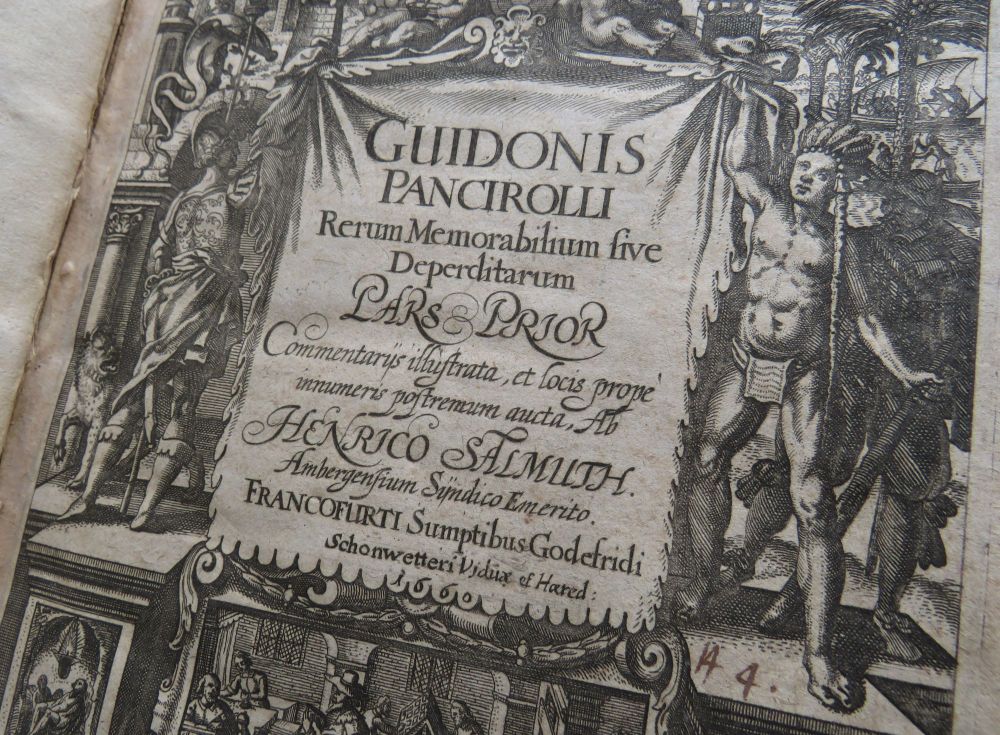 GUIDONIS
PANCIROLLI
Rerum Memorabilium ſive
Deperditarum
PARS PRIOR
Commentarijs illuſtrata, et locis propè
innumeris poſtremum aucta, Ab
HENRICO SALMUTH.
Ambergenſium Sÿndico Emerito.
FRANCOFURTI Sumptibus Godefridi
Schonwetteri Viduæ et Hæred:
1660
A 4.